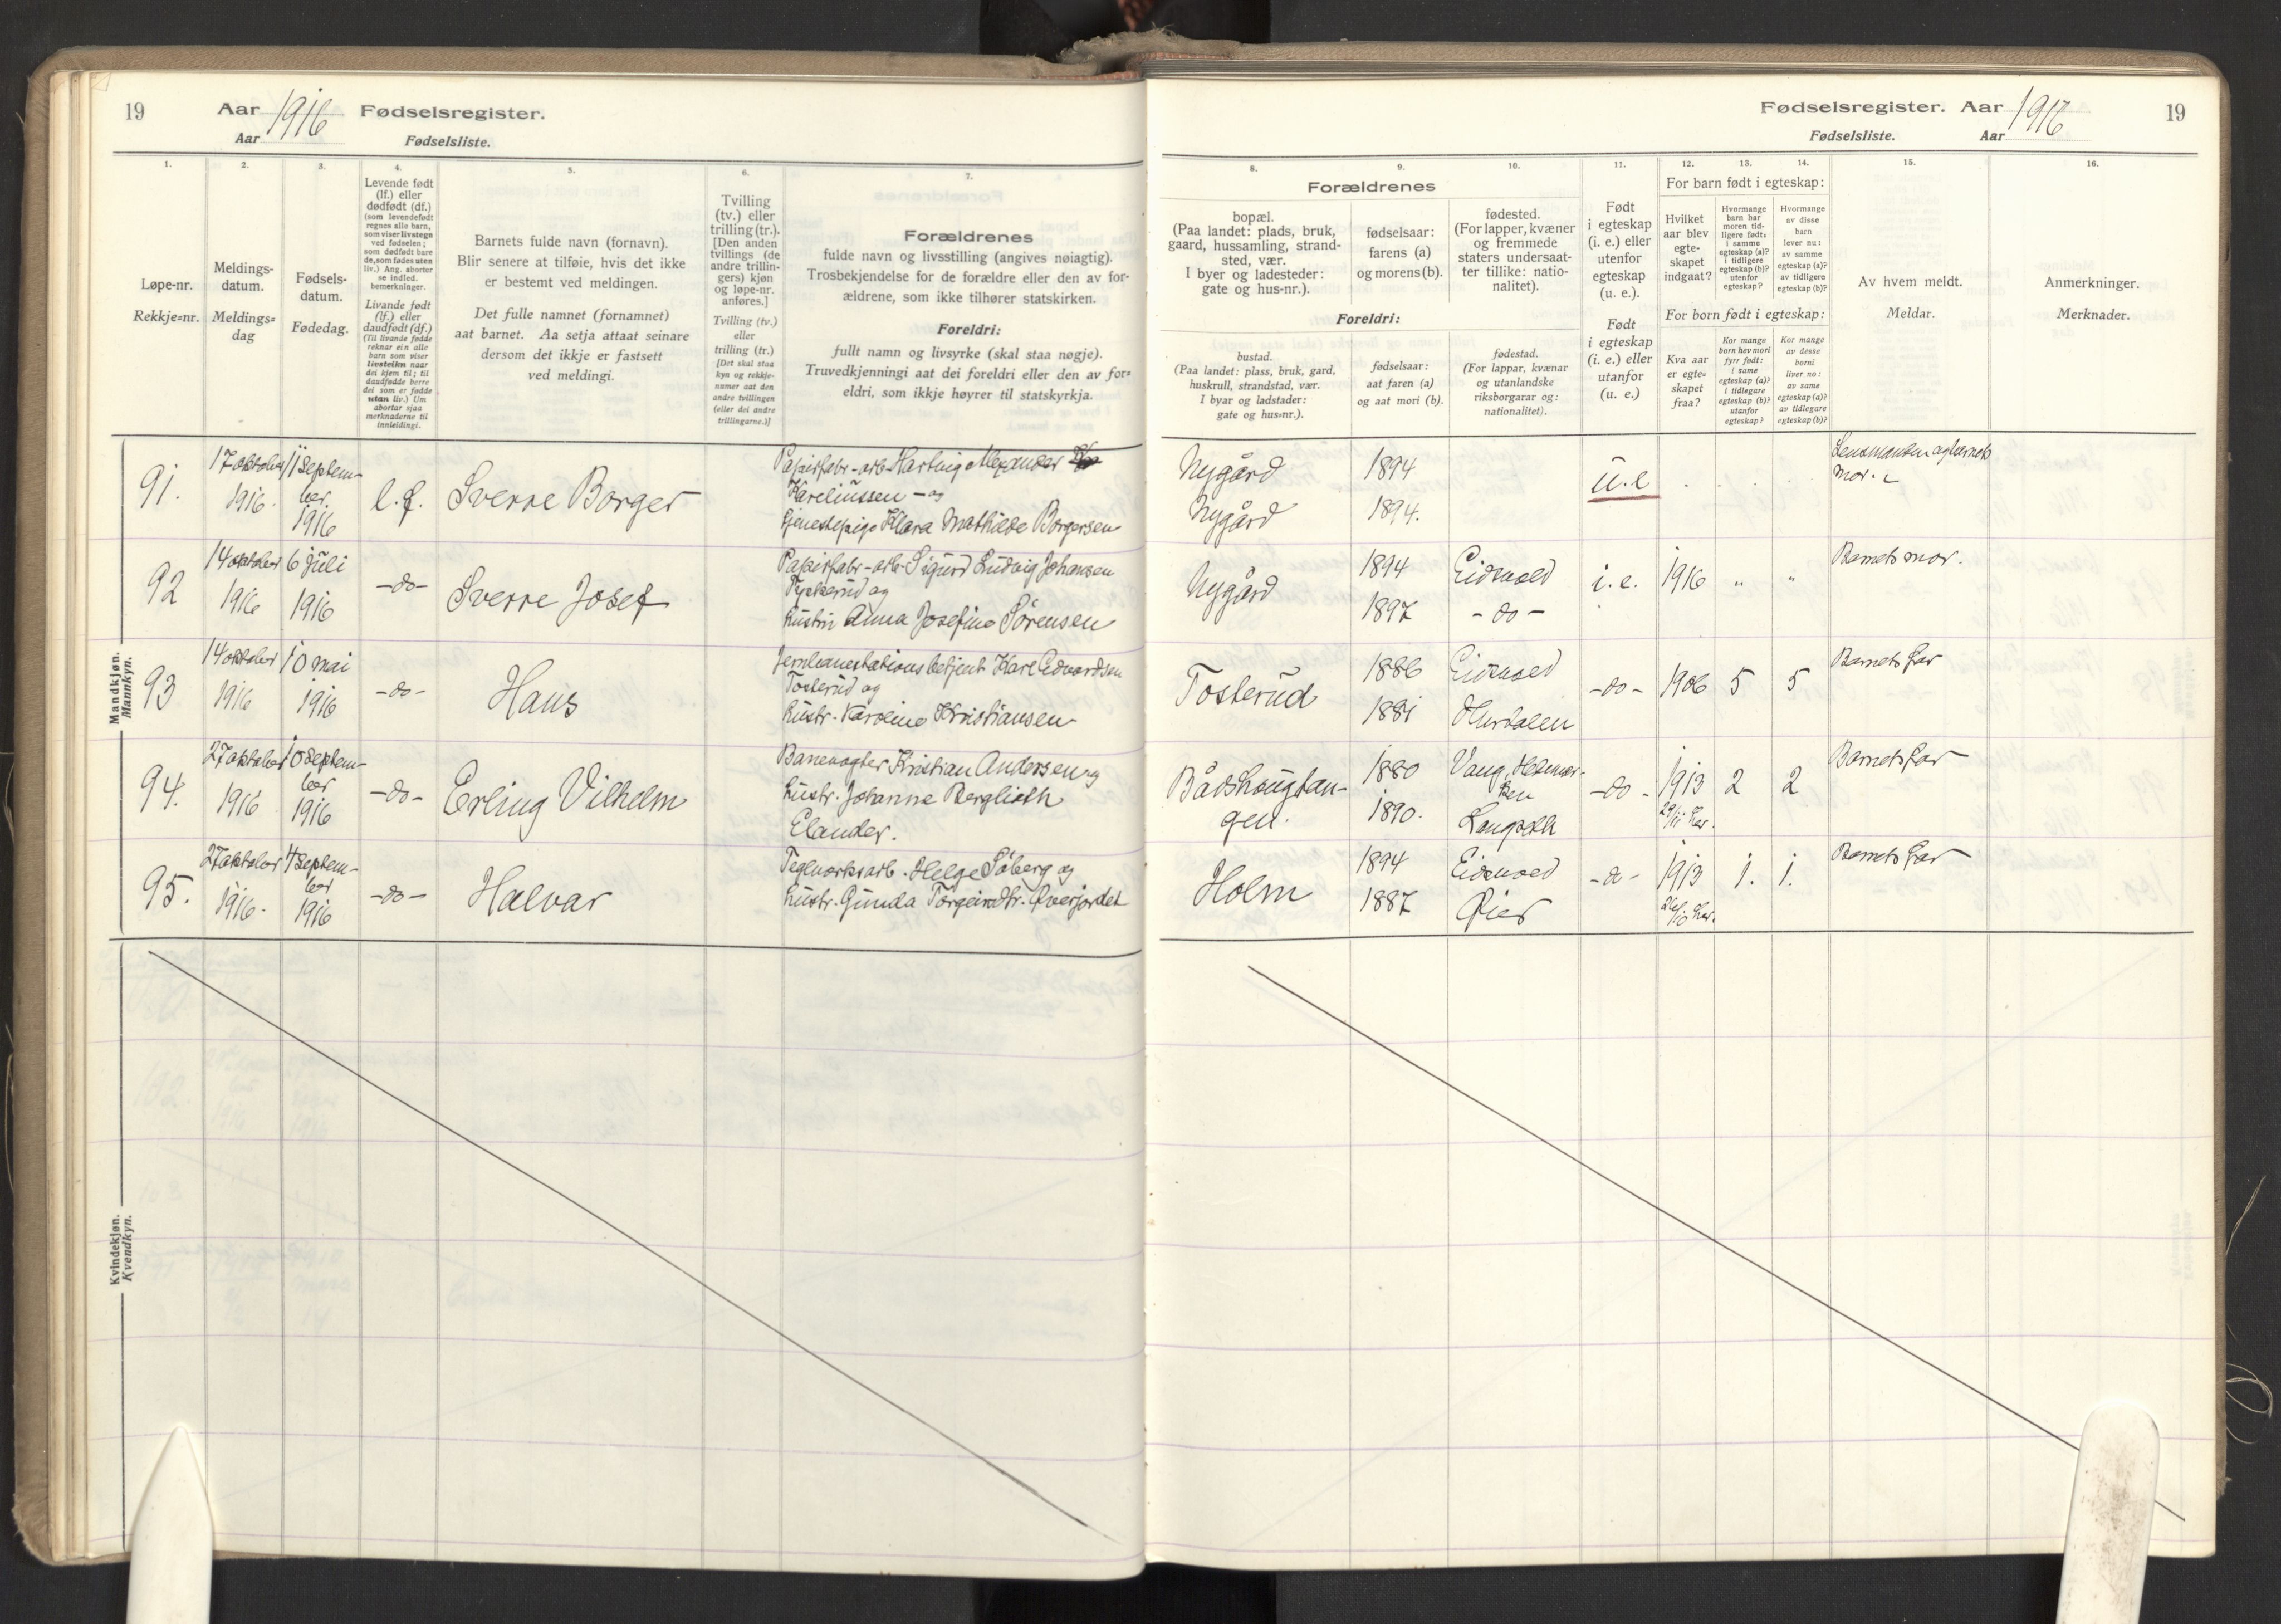 19
Aar 1916 Fødselsregister.
Aar
Fødselsliste.
1.
2.
3.
4.
5.
6.
7.
Løpe-nr.
Rekkje-nr.
Meldings-
datum.
Meldings-
dag
Fødsels-
datum.
Fødedag.
Levende født
(lf.) eller
dødfødt (df.)
(som levendefødt
regnes alle barn,
som viser livstegn
ved fødselen;
som dødfødt bare
de, som fødes uten
liv.) Ang. aborter
se indled.
bemerkninger.
Livande født
(lf.) eller
daudfødt (df.)
(Til livande fødde
reknar ein alle
barn som viser
livsteikn naar
dei kjem til; til
daudfødde berre
dei som er fødde
utan liv.) Um
abortar sjaa
merknaderne til
innleidingi.
Barnets fulde navn (fornavn).
Blir senere at tilføie, hvis det ikke
er bestemt ved meldingen.
Det fulle namnet (fornamnet)
aat barnet. Aa setja attaat seinare
dersom det ikkje er fastsett
ved meldingi.
Tvilling
(tv.) eller
trilling (tr.).
[Den anden
tvillings (de
andre trillin-
gers) kjøn
og løpe-nr.
anføres.]
Tvilling (tv.)
eller
trilling (tr.)
[Det skal staa
kyn og rekkje-
numer aat den
andre tvillingen
(eller dei andre
trillingarne.)]
Forældrenes
fulde navn og livsstilling (angives nøiagtig).
Trosbekjendelse for de forældre eller den av for-
ældrene, som ikke tilhører statskirken.
Foreldri:
fullt namn og livsyrke (skal staa nøgje).
Truvedkjenningi aat dei foreldri eller den av for-
eldri, som ikkje høyrer til statskyrkja.
Mandkjøn.
Mannkyn.
91.
17 oktober
1916.
11 Septem-
ber
1916
l.f.
Sverre Borger
Papirfabr-arb. Hartvig Alexander
Kareliussen - og
tjenestepige Klara Mathilde Borgersen
92
14 oktober
1916
6 juli
1916
-do-
Sverre Josef
Papirfabr-arb. Sigurd Ludvig Johansen
og
hustru Anna Josefine Sørensen
93
14 oktober
1916
10 mai
1916
-do-
Hans
Jernbanestationsbetjent Karl Edvardsen
Tosterud og
hustr. Karoline Kristiansen
94.
27 oktober
1916
10 Septem-
ber
1916
-do-
Erling Vilhelm
Banevogter Kristian Andersen og
hustr. Johanne Berglioth
Elander.
95.
27 oktober
1916.
4 Septem-
ber
1916
-do-
Halvar
Teglverksarb. Helge Søberg og
hustr. Gunda Torgeirsdtr. Øverjordet
Kvindekjøn.
Kvendkyn.
Fødselsregister. Aar 1916
19
Fødselsliste.
Aar
8.
9.
10.
11.
12.
13.
14.
15.
16.
Forældrenes
bopæl.
(Paa landet: plads, bruk,
gaard, hussamling, strand-
sted, vær.
I byer og ladesteder:
gate og hus-nr.).
fødselsaar:
farens (a)
og morens (b).
fødested.
(For lapper, kvæner
og fremmede
staters undersaat-
ter tillike: natio-
nalitet).
Foreldri:
bustad.
(Paa landet: plass, bruk, gard,
huskrull, strandstad, vær.
I byar og ladstader:
gate og hus-nr.).
fødselsaar:
aat faren (a)
og aat mori (b).
fødestad.
(For lappar, kvænar
og utanlandske
riksborgarar og:
nationalitet).
Født
i egteskap
(i. e.) eller
utenfor
egteskap
(u. e.).
Født
i egteskap
(i. e.) eller
utanfor
(u. e.)
For barn født i egteskap:
Hvilket
aar blev
egte-
skapet
indgaat?
Hvormange
barn har
moren tid-
ligere født:
i samme
egteskap (a)?
i tidligere
egteskap (b)?
utenfor
egteskap?
Hvormange
av disse
barn
lever nu:
av samme
egteskap (a)?
av tidligere
egteskap (b)?
For born født i egteskap:
Kva aar
er egte-
skapet
fraa?
Kor mange
born hev mori
fyrr født:
i same
egteskap (a)?
i tidlegare
egteskap (b)?
utanfor
egteskap?
Kor mange
av desse
borni
liver no:
av same
egteskap (a)?
av tidlegare
egteskap (b)?
Av hvem meldt.
Meldar.
Anmerkninger.
Merknader.
Nygård
Nygård
1894
1894.
u.e
Lensmanden og barnets
mor.
Nygård
1894
1897
Eidsvold
-do-
i.e.
1916
"
"
Barnets mor.
Tosterud
1886
1881
Eidsvold
Hurdalen
-do-
1906
5
5
Barnets far
Bådshougtan-
gen.
1880
1890.
Vang, Hedmar-
ken
Langseth
-do-
1913
29/11
2
2
Barnets far
Holm
1894
1887
Eidsvold
Øier
-do-
1913
26/10
1.
1.
Barnets far